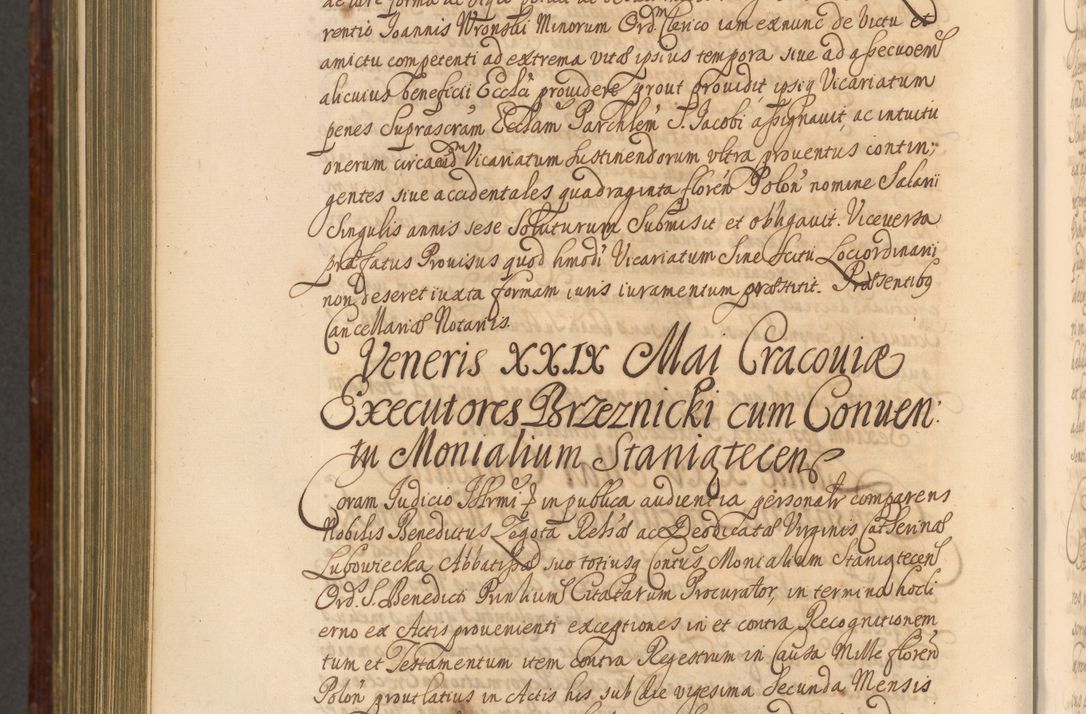 rentio Joannis Wronski Minorum Ord. Clerico iam ex nunc de Victu et
amictu competenti ad extrema vitæ ipsius tempora siue ad assecuoem
alicuius beneficii Eccl͠i prouidere prout prouidit ipsiq Vicariatum
penes Suprascr̃am Eccl̃am Parchl̃em S. Jacobi assignauit, ac intuitu
onerum circa eũd Vicariatum sustinendorum vltra prouentus contin:
gentes siue accidentales quadraginta floren̄ Polon̄ nomine Salarii
Singulis annis sese soluturum Submisit et obligauit. Viceversa
præfatus Prouisus quod hmodi Vicariatum Sine Scitu Lociordinarii
non deseret iuxta formam iuris iuramentum præstitit. Præsentibq
Cancellariæ Notariis.
Veneris XXIX Mai Cracouiæ
Executores Brzeznicki cum Conuen:
tu Monialium Staniątecen
Coram Judicio Illr̃mi in publica audientia personalr comparens
Nobilis Benedictus Zegota Relig ac Deo dicatæ Virginis Catherinæ
Lubowiecka Abbatissæ suo totiusq Contus Monialium Staniątecen
Ord. S. Benedicti Prin̄lium Citatarum Procurator, in termino hodi
erno ex Actis prouenienti exceptiones in et contra Recognitionem
tum et Testamentum item contra Regestrum in Causa Mille floren̄
Polon̄ prout latius in Actis his sub die vigesima Secunda Mensis